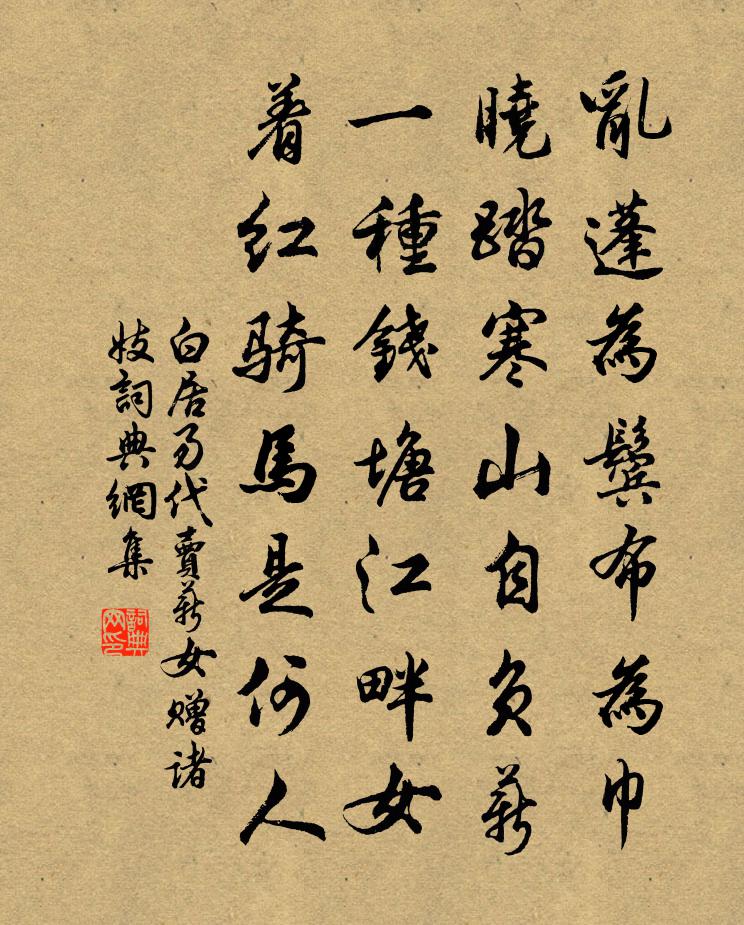 亂蓬為鬢布為巾
曉踏寒山自負薪
一種錢塘江畔女
着红骑馬是何人
白居易代賣薪女贈诸
妓詞典網集
詞典网印